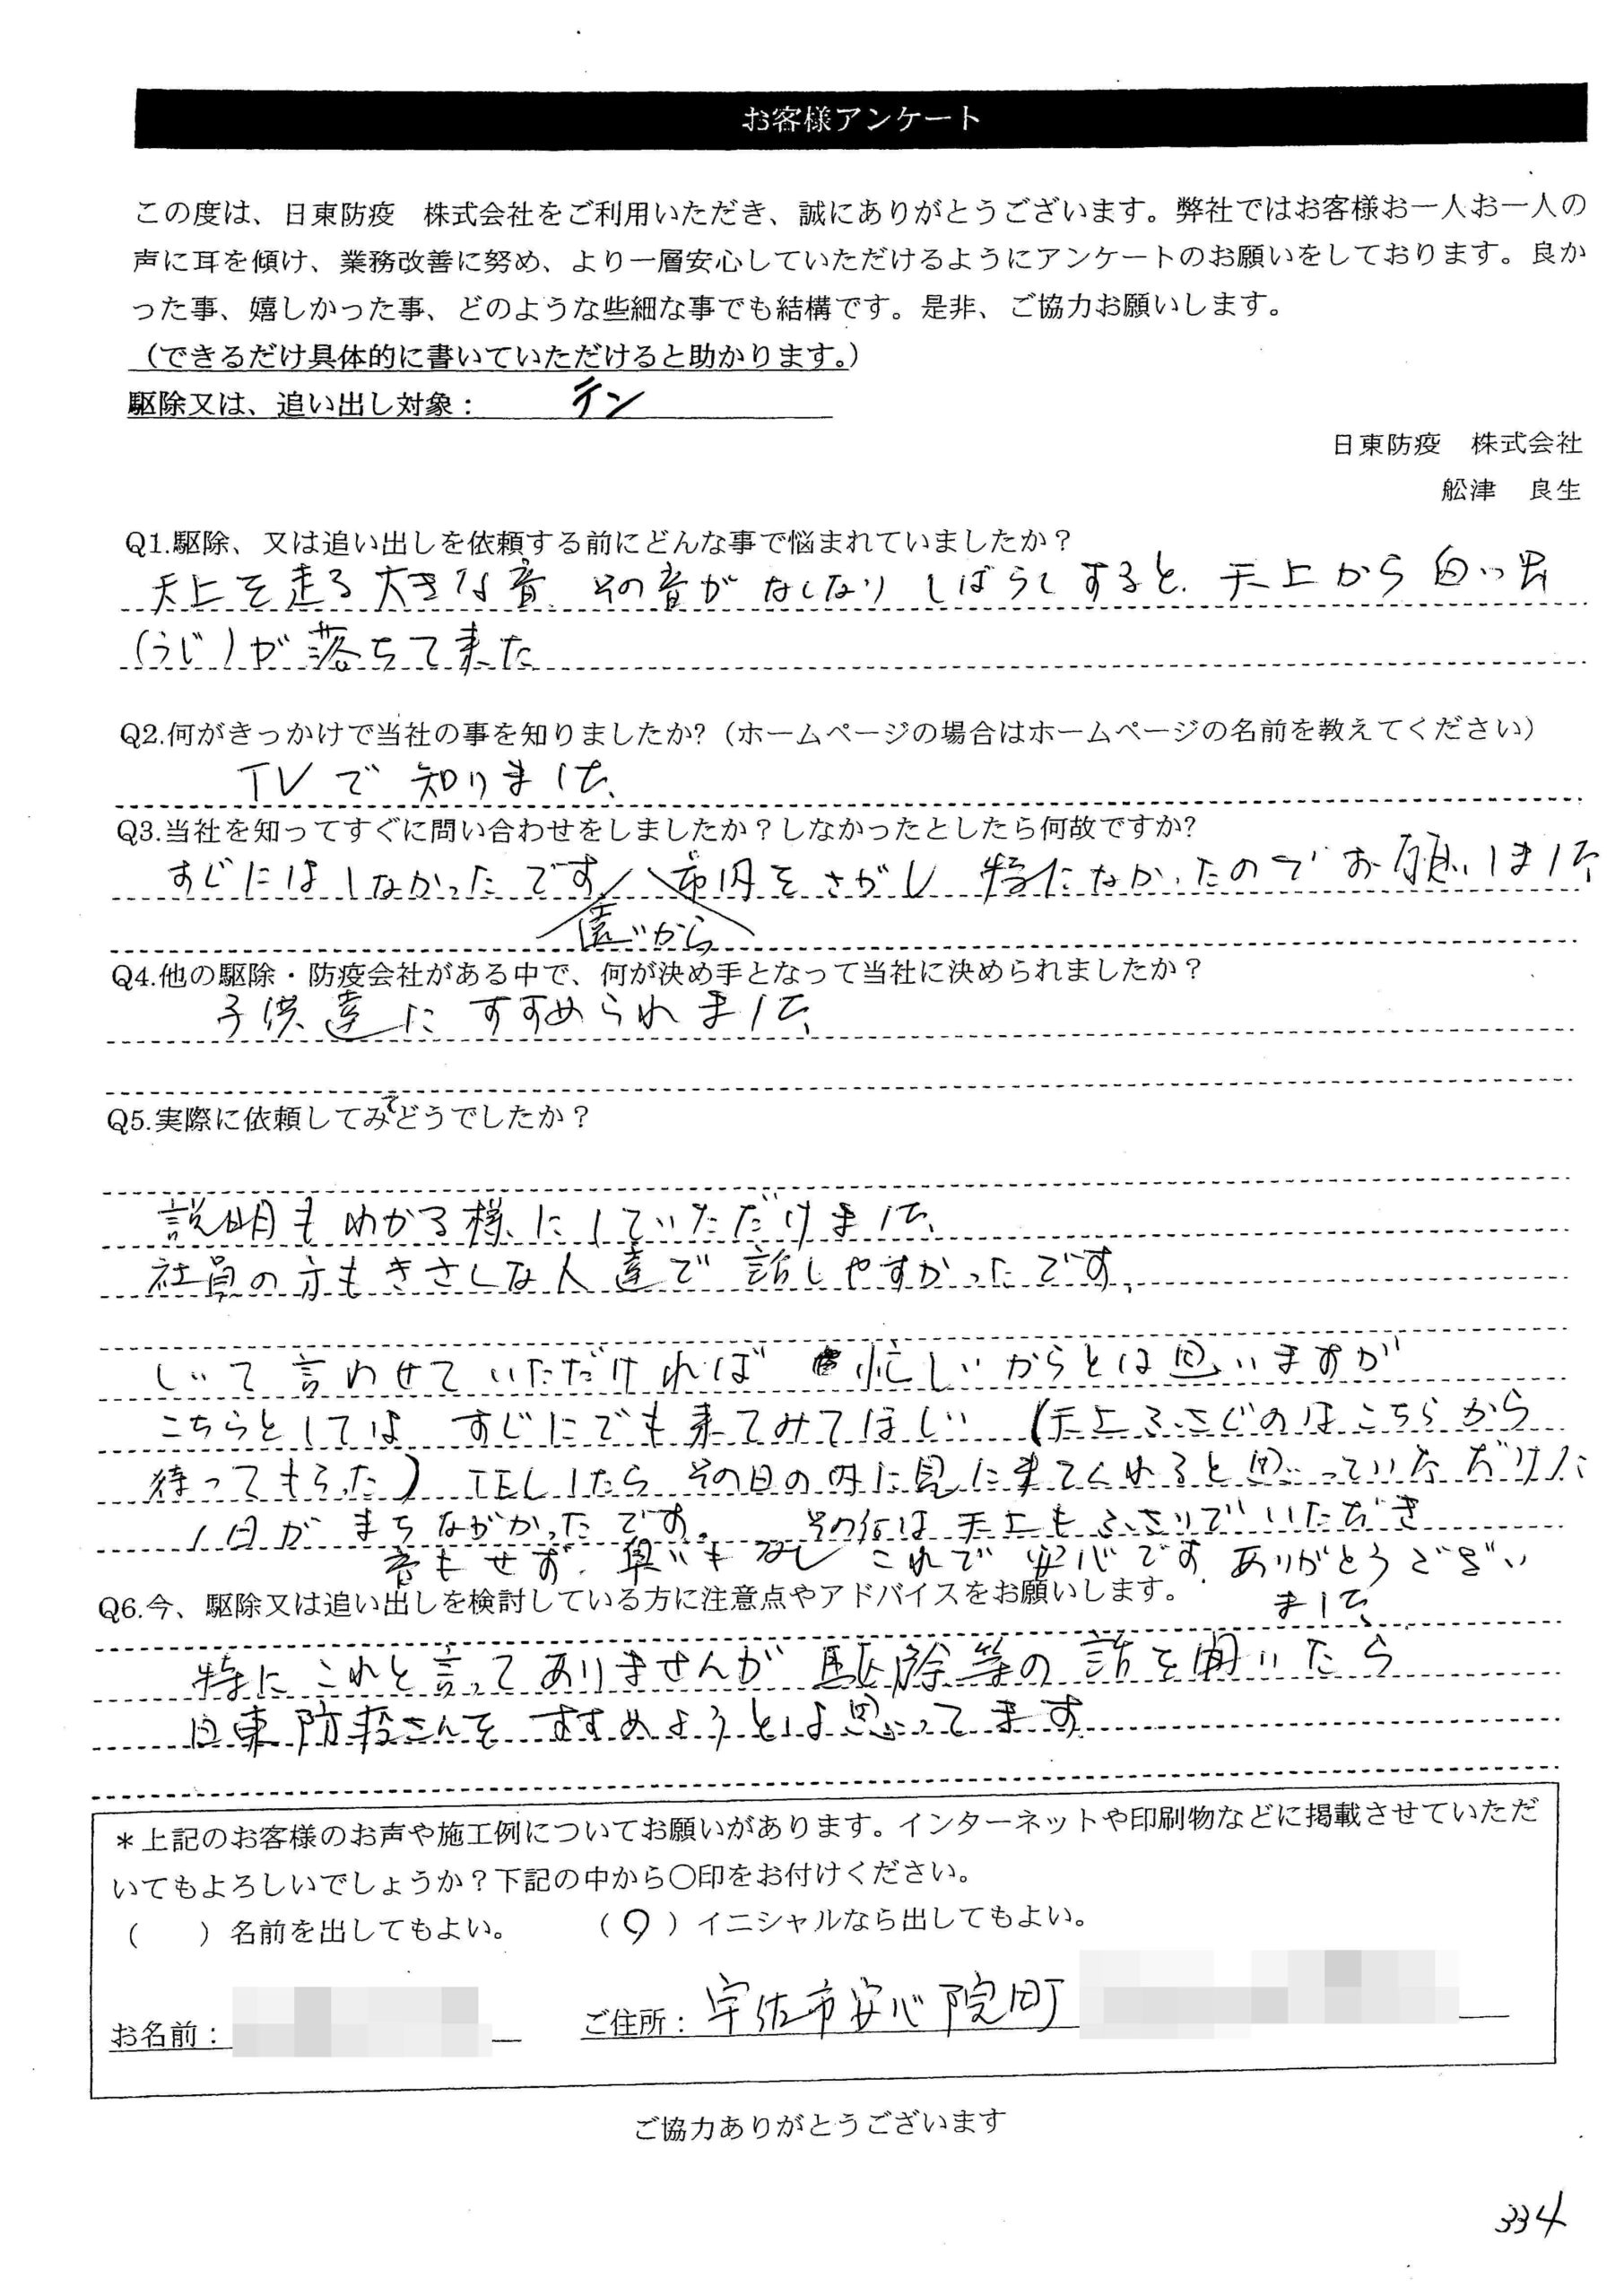 お客様アンケート
この度は、日東防疫　株式会社をご利用いただき、誠にありがとうございます。弊社ではお客様お一人お一人の
声に耳を傾け、業務改善に努め、より一層安心していただけるようにアンケートのお願いをしております。良か
った事、嬉しかった事、どのような些細な事でも結構です。是非、ご協力お願いします。
（できるだけ具体的に書いていただけると助かります。）
駆除又は、追い出し対象：　テン
日東防疫　株式会社
舩津　良生
Q1.駆除、又は追い出しを依頼する前にどんな事で悩まれていましたか？
天上を走る大きな音、その音がなくなりしばらくすると、天上から白い虫
(うじ)が落ちて来た
Q2.何がきっかけで当社の事を知りましたか?（ホームページの場合はホームページの名前を教えてください）
TVで知りました、
Q3.当社を知ってすぐに問い合わせをしましたか？しなかったとしたら何故ですか?
すぐにはしなかったです 市内をさがし 特になかったのでお願いしました
遠いから
Q4.他の駆除・防疫会社がある中で、何が決め手となって当社に決められましたか？
子供達にすすめられました、
Q5.実際に依頼してみてどうでしたか？
説明もわかる様にしていただけました、
社員の方もきさくな人達で話しやすかったです、
しいて言わせていただければ 忙しいからとは思いますが
こちらとしては すぐにでも来てみてほしい (天上ふさぐのはこちらから
待ってもらった) TELしたら その日の内に見に来てくれると思っていただけに
1日がまちながかったです。 その後は天上もふさいでいただき
音もせず、臭いもなし これで安心です、ありがとうござい
ました、
Q6.今、駆除又は追い出しを検討している方に注意点やアドバイスをお願いします。
特にこれと言ってありませんが 駆除等の話を聞いたら
日東防疫さんをすすめようとは思ってます
＊上記のお客様のお声や施工例についてお願いがあります。インターネットや印刷物などに掲載させていただ
いてもよろしいでしょうか？下記の中から〇印をお付けください。
（　　）名前を出してもよい。　（〇）イニシャルなら出してもよい。
お名前：　ご住所：宇佐市安心院町
ご協力ありがとうございます
334